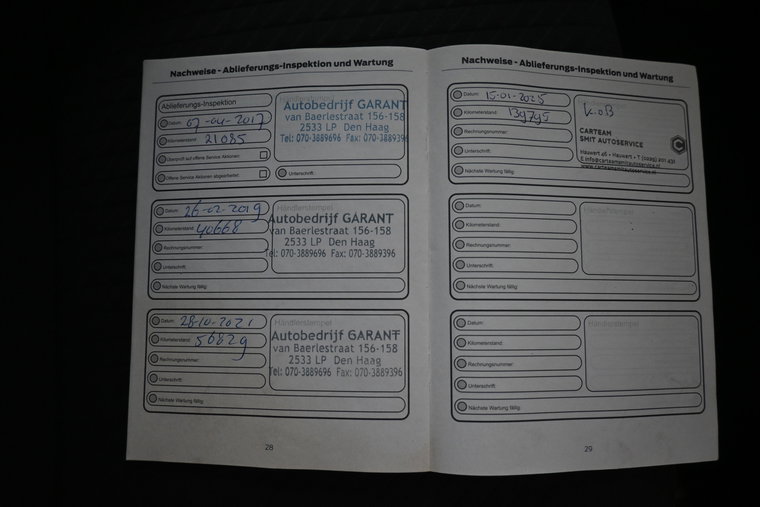 Nachweise - Ablieferungs-Inspektion und Wartung
Ablieferungs-Inspektion
Datum: 07-04-2017
Kilometerstand: 21085
Überprüft auf offene Service Aktionen:
Offene Service Aktionen abgearbeitet:
Autobedrijf GARANT
van Baerlestraat 156-158
2533 LP Den Haag
Tel: 070-3889696 Fax: 070-3889396
Unterschrift:
Datum: 26-02-2019
Kilometerstand: 40668
Rechnungsnummer:
Unterschrift:
Nächste Wartung fällig:
Händlerstempel
Autobedrijf GARANT
van Baerlestraat 156-158
2533 LP Den Haag
Tel: 070-3889696 Fax: 070-3889396
Datum: 28-10-2021
Kilometerstand: 56829
Rechnungsnummer:
Unterschrift:
Nächste Wartung fällig:
Händlerstempel
Autobedrijf GARANT
van Baerlestraat 156-158
2533 LP Den Haag
Tel: 070-3889696 Fax: 070-3889396
28
Nachweise - Ablieferungs-Inspektion und Wartung
Datum: 15-01-2025
Kilometerstand:
Rechnungsnummer:
Unterschrift:
Nächste Wartung fällig:
Händlerstempel
CARTEAM
SMIT AUTOSERVICE
Hauwert 46 • Hauwert • T (0229) 201 431
E info@carteamsmitautoservice.nl
www.carteamsmitautoservice.nl
Datum:
Kilometerstand:
Rechnungsnummer:
Unterschrift:
Nächste Wartung fällig:
Händlerstempel
Datum:
Kilometerstand:
Rechnungsnummer:
Unterschrift:
Nächste Wartung fällig:
Händlerstempel
29